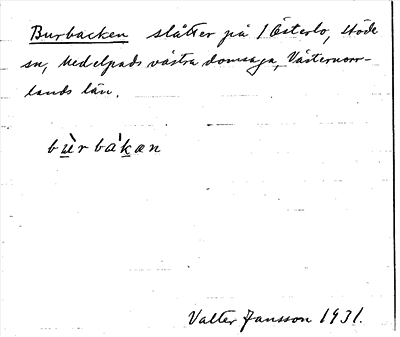 Burbacken slåtter på 1 Österlo, Stöde
sn, Medelpads västra domsaga, Västernorr-
lands län.
bùrbàkæn
Valter Jansson 1931.